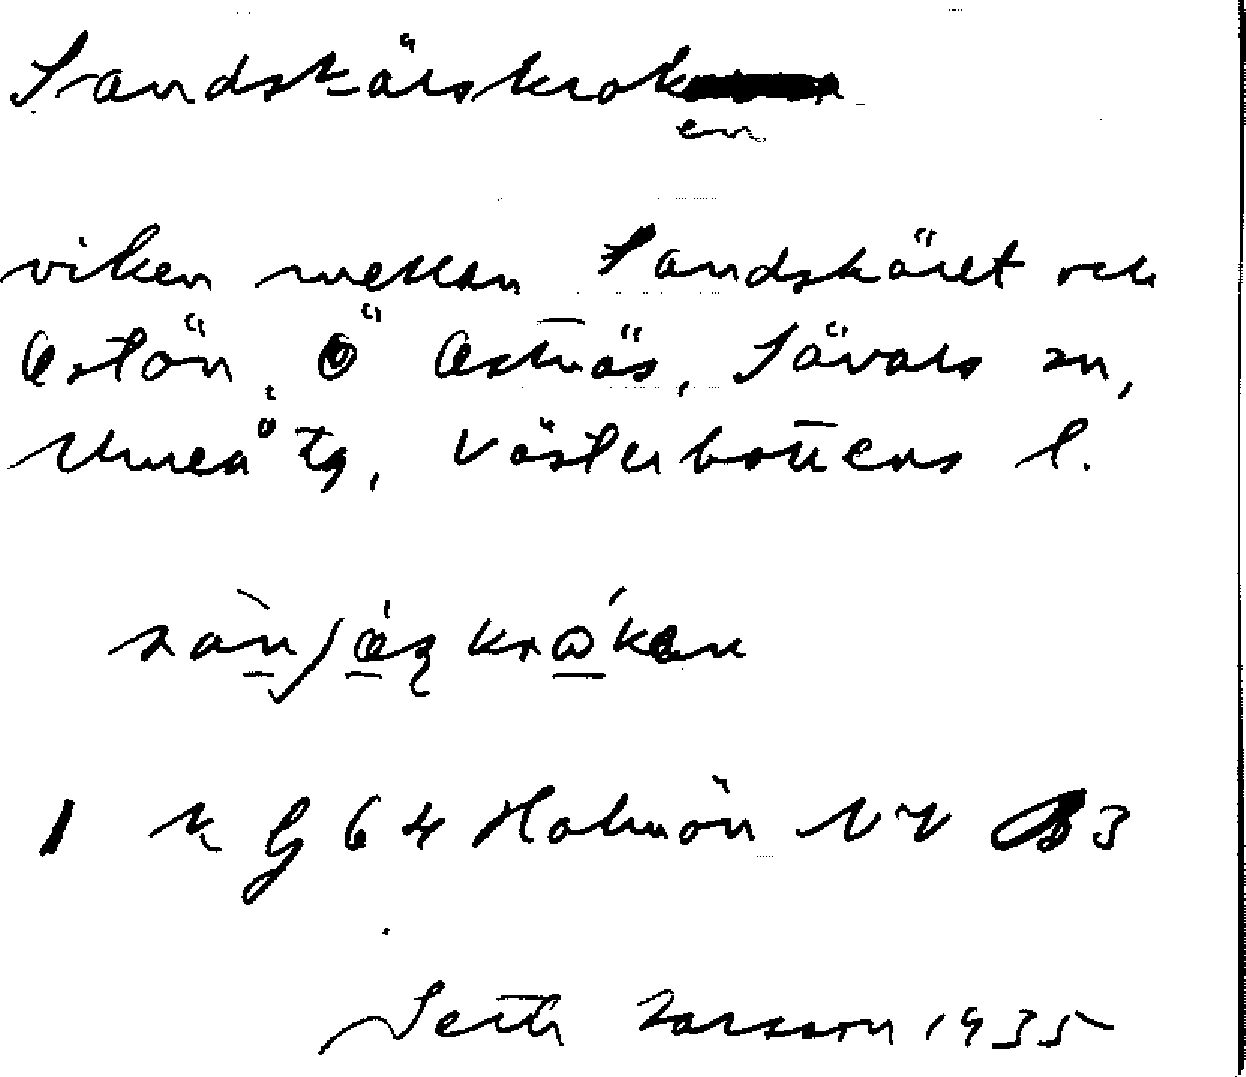 Sandskärskroken
viken mellan Sandskäret och
Ostön. Ö Ostnäs, Sävars sn,
Umeå tg, Västerbottens l.
Holmön NV B3
Seth Larsson 1935